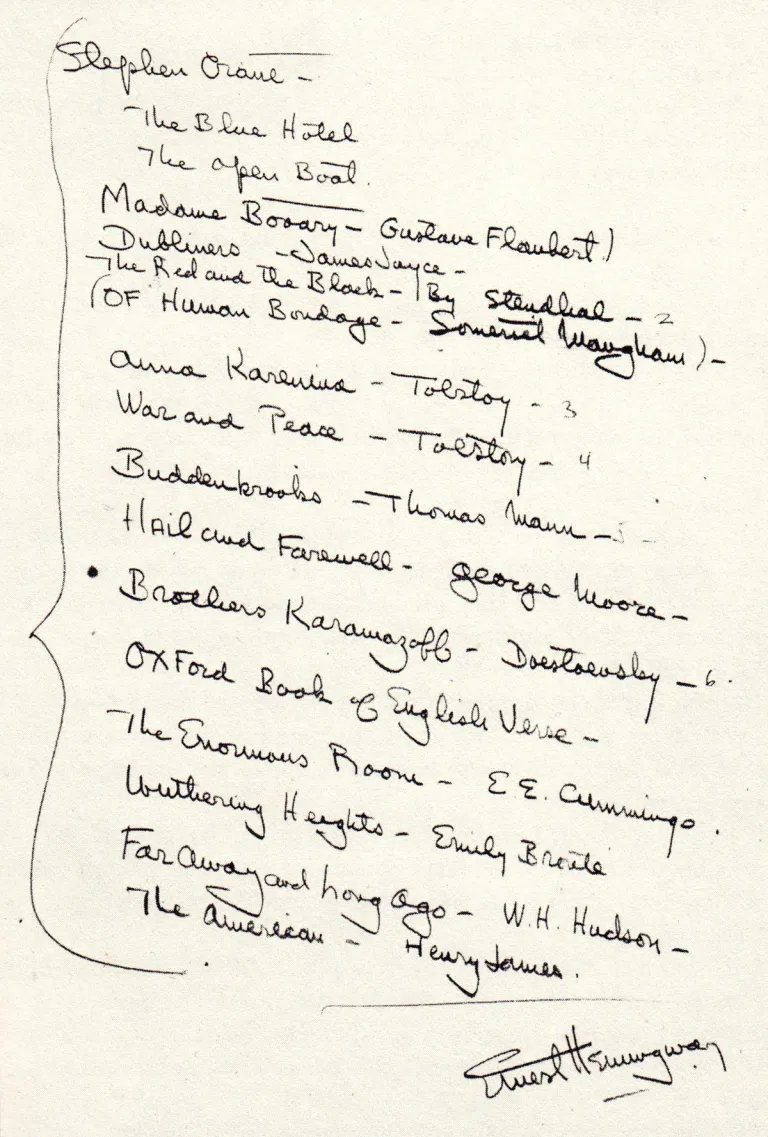 Stephen Crane –
The Blue Hotel
The Open Boat.
Madame Bovary – Gustave Flaubert)
Dubliners – James Joyce –
The Red and the Black – By Stendhal – 2
(OF Human Bondage – Somerset Maugham) –
Anna Karenina – Tolstoy – 3
War and Peace – Tolstoy – 4
Buddenbrooks – Thomas Mann – 5 –
HAil and Farewell – George Moore –
Brothers Karamazoff – Doestoevsky – 6.
OXFord Book of English Verse –
The Enormous Room – E.E. Cummings.
Wuthering Heights – Emily Bronte
Far Away and Long Ago – W.H. Hudson –
The American – Henry James.
Ernest Hemingway